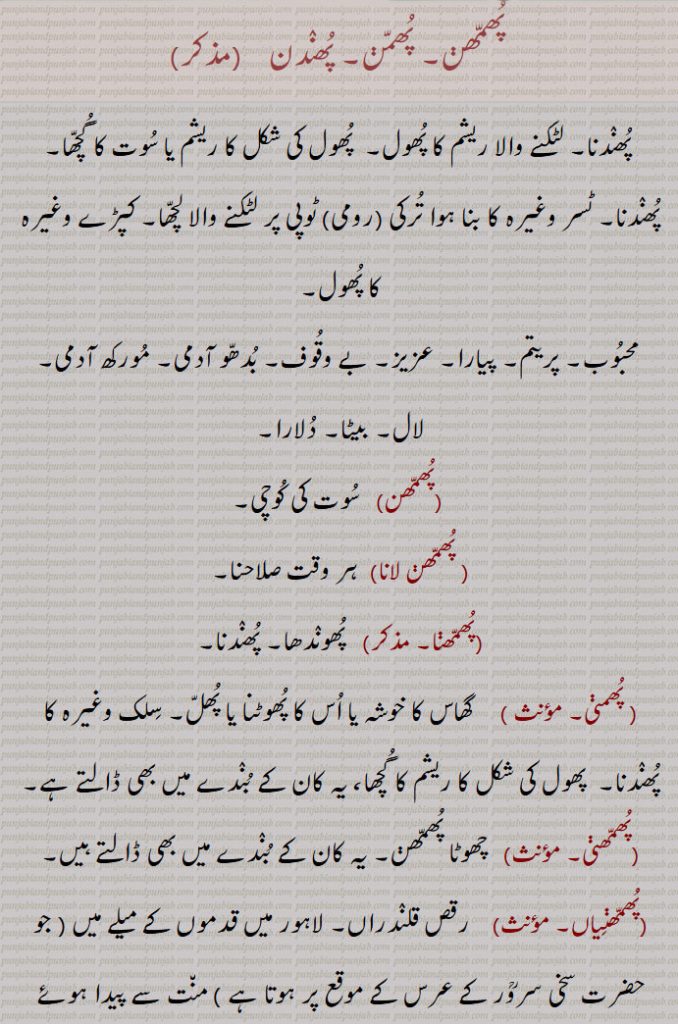 پُھمّھݨ۔ پُھمّݨ۔ پُھنْدن (مذکر)
پُھنْدنا۔ لٹکنے والا ریشم کا پُھول۔ پُھول کی شکل کا ریشم یا سُوت کا گُچّھا۔
پُھنْدنا۔ ٹسر وغیرہ کا بنا ہوا تُرکی (رومی) ٹوپی پر لٹکنے والا لچّھا۔ کپڑے وغیرہ
کا پُھول۔
محبُوب۔ پریتم۔ پیارا۔ عزیز۔ بے وقُوف۔ بُدھّو آدمی۔ مُورکھ آدمی۔
لال۔ بیٹا۔ دُلارا۔
(پُھمّھن) سُوت کی کُوچی۔
(پُھمّھݨ لانا) ہر وقت صلاحنا۔
(پُھمّھݨا۔ مذکر) پُھونْدھا۔ پُھنْدنا۔
(پُھمݨی۔ مؤنث) گھاس کا خوشہ یا اُس کا پُھوٹنا یا پُھلّ۔ سِلک وغیرہ کا
پُھنْدنا۔ پھول کی شکل کا ریشم کا گُچھا، یہ کان کے بُنْدے میں بھی ڈالتے ہے۔
(پُھمّھݨی۔ مؤنث) چھوٹا پُھمّھݨ۔ یہ کان کے بُنْدے میں بھی ڈالتے ہیں۔
(پُھمّھݨیاں۔ مؤنث) رقص قلنْدراں۔ لاہور میں قدموں کے میلے میں (جو
حضرت سخی سروَرؒ کے عرس کے موقع پر ہوتا ہے) منّت سے پیدا ہوئے